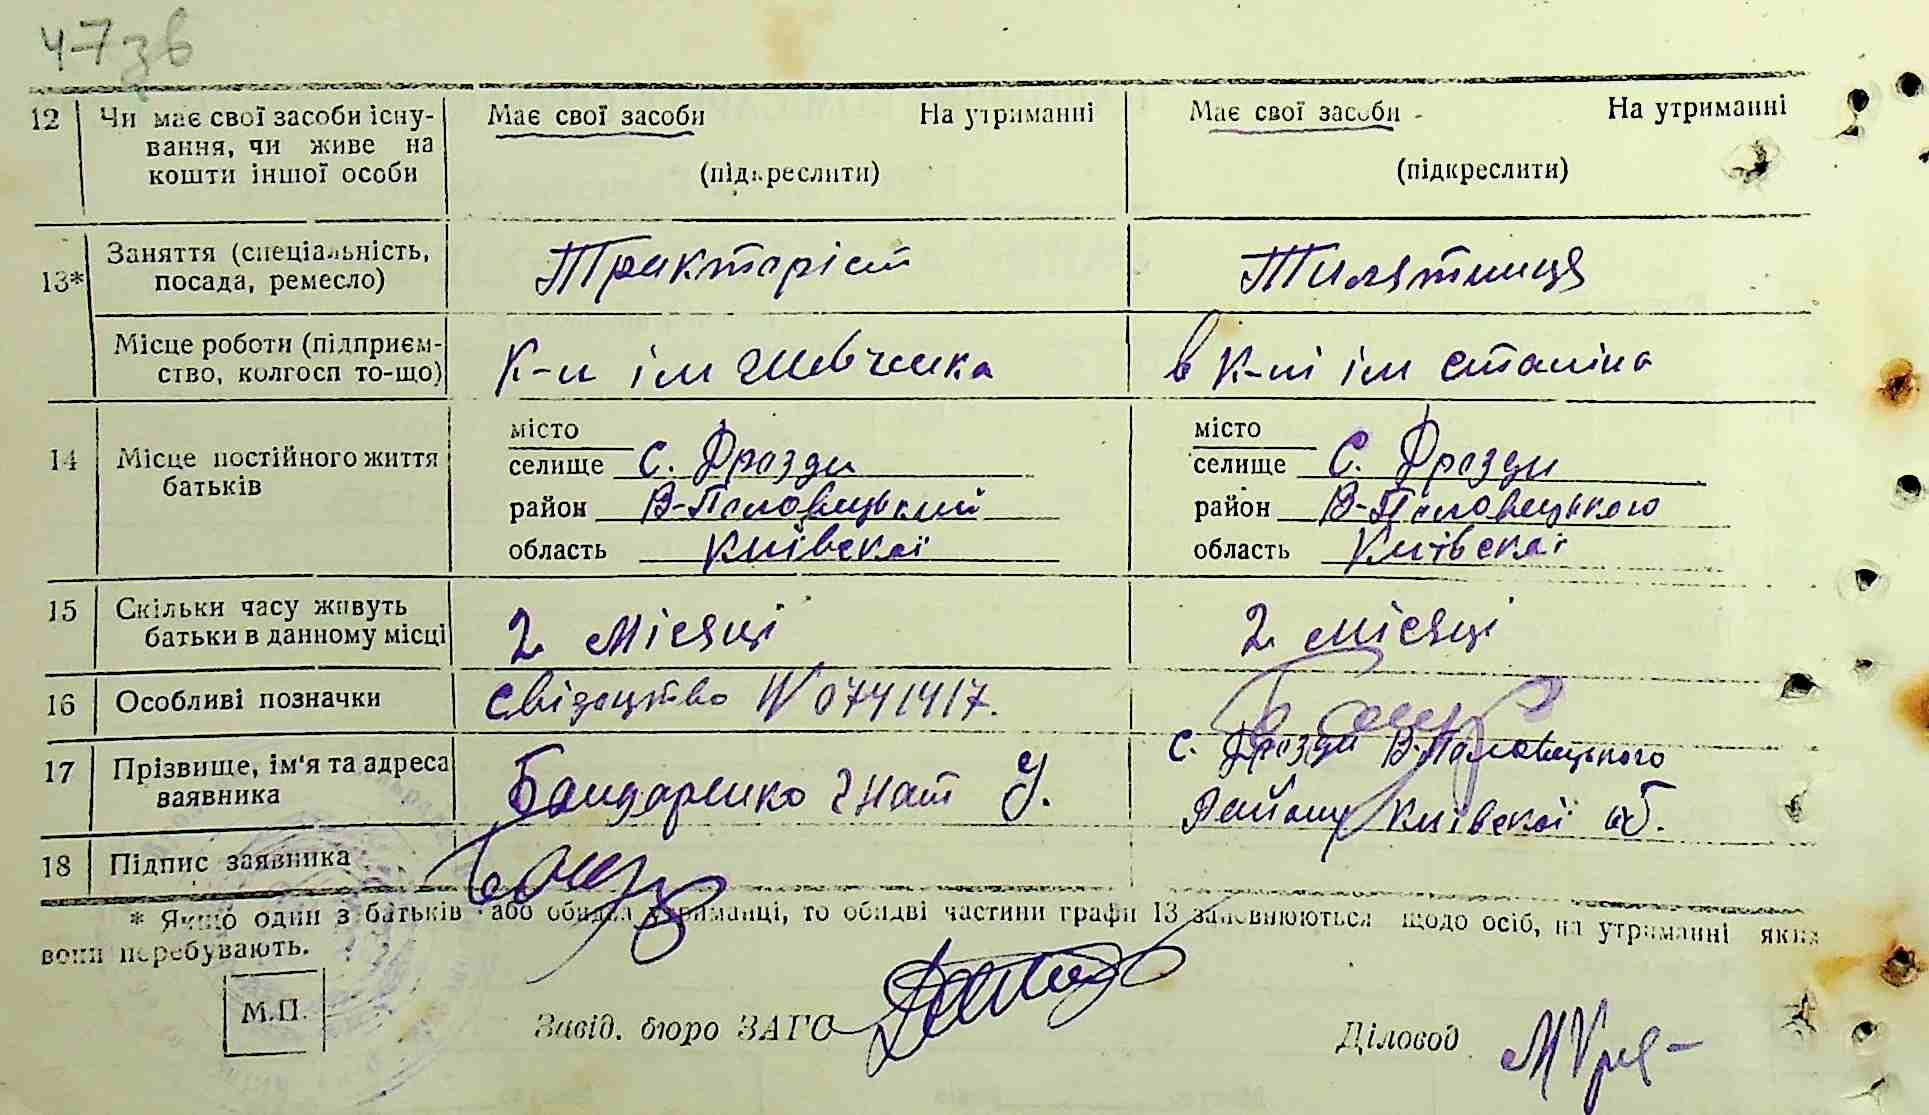 47зв
12 Чи має свої засоби існу-
вання, чи живе на
кошти іншої особи
Має свої засоби На утриманні
(підкреслити)
Має свої засоби На утриманні
(підкреслити)
13* Заняття (спеціальність,
посада, ремесло)
Тракторіст
Тилятниця
Місце роботи (підприєм-
ство, колгосп то-що)
К-п ім Шевченка
в К-пі ім Сталіна
14 Місце постійного життя
батьків
місто
селище С. Дрозди
район В-Половецький
область Київскої
місто
селище С. Дрозди
район В-Половецького
область Київскої
15 Скільки часу живуть
батьки в данному місці
2 місяці
2 місяці
16 Особливі позначки
свідоцтво N 0741417.
17 Прізвище, ім'я та адреса
заявника
Бондаренко Гнат У.
с. Дрозди В-Половецького
Району Київскої об.
18 Підпис заявника
* Якщо один з батьків або обидва утриманці, то обидві частини графи 13 заповнюються щодо осіб, на утриманні яких
вони перебувають.
М.П.
Завід. бюро ЗАГС
Діловод